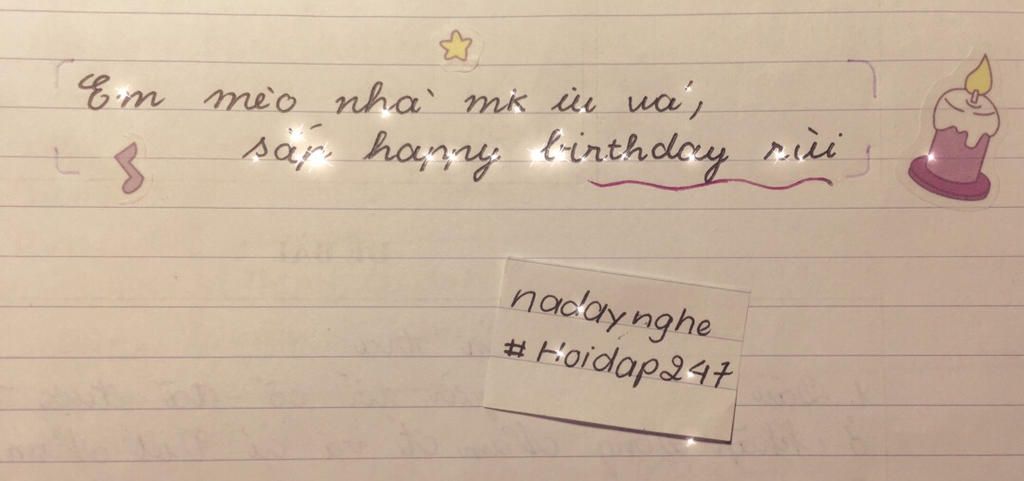 Em mèo nhà mk iu uá,
sắp happy birthday rùi
nadaynghe
#Hoidap247